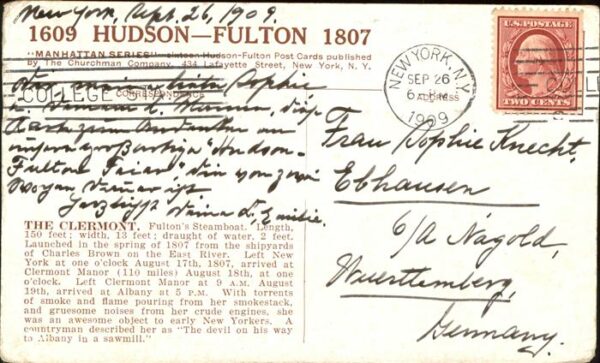 New York, Sept. 26, 1909.
1609 HUDSON—FULTON 1807
"MANHATTAN SERIES"—sixteen Hudson-Fulton Post Cards published
by The Churchman Company, 434 Lafayette Street, New York, N. Y.
CORRESPONDENCE
Sophie,
COLLEGE STA.
an
"Hudson-
Fulton Feier," die von zwei
Wochen Dauer ist
Herzlichst Deine L. Emilie.
THE CLERMONT. Fulton's Steamboat. Length,
150 feet; width, 13 feet; draught of water, 2 feet.
Launched in the spring of 1807 from the shipyards
of Charles Brown on the East River. Left New
York at one o'clock August 17th, 1807, arrived at
Clermont Manor (110 miles) August 18th, at one
o'clock. Left Clermont Manor at 9 A.M. August
19th, arrived at Albany at 5 P.M. With torrents
of smoke and flame pouring from her smokestack,
and gruesome noises from her crude engines, she
was an awesome object to early New Yorkers. A
countryman described her as "The devil on his way
to Albany in a sawmill."
NEW YORK, N.Y.
SEP 26
6 PM
1909
ADDRESS
U.S. POSTAGE
TWO CENTS
Frau Sophie Knecht,
Ebhausen
o/A Nagold,
Wuerttemberg,
Germany.